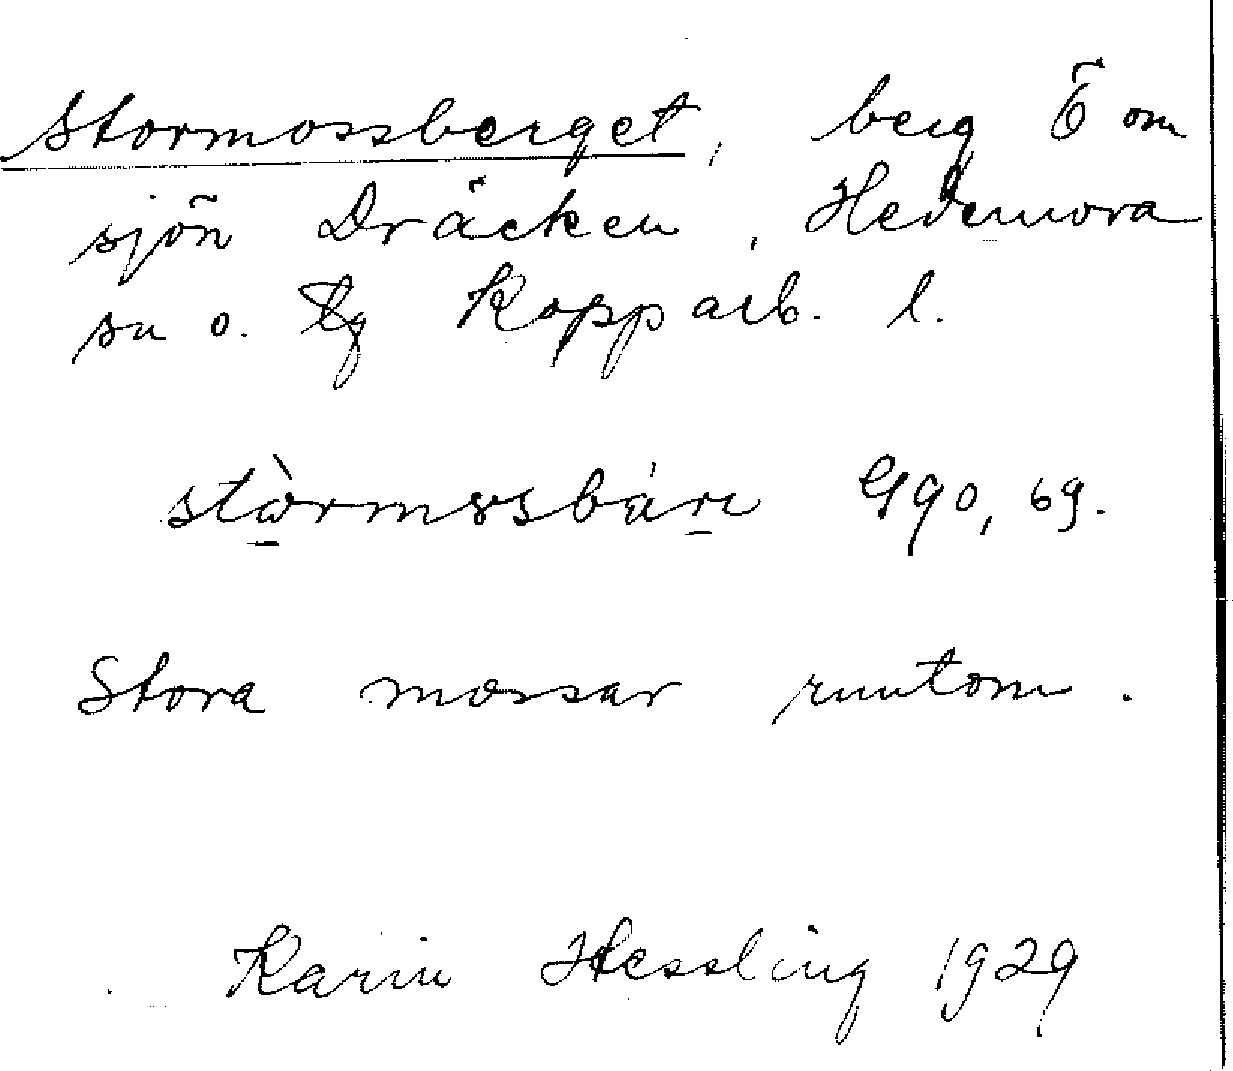 Stormossberget, berg Ö om
sjön Dräcken, Hedemora
sn o. tg Kopparb. l.
stòrmossbárε G90, 69.
Stora mossar runtom.
Karin Hessling 1929